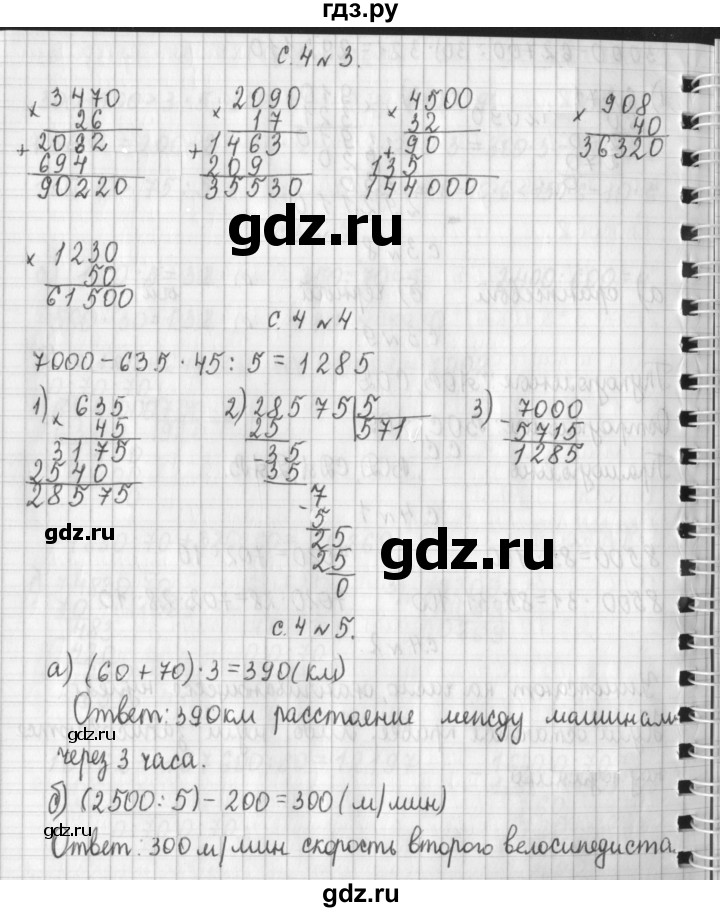 гдз.ру
с. 4 № 3.
× 3470
26
+ 2082
694
90220
× 2090
17
+ 1463
209
35530
× 4500
32
+ 90
135
144000
× 908
40
36320
× 1230
50
61500
с. 4 № 4.
7000 - 635 · 45 : 5 = 1285
1) × 635
45
3175
2540
28575
2) 28575 5
25 571
- 35
35
7
- 5
25
25
0
3) 7000
- 5715
1285
с. 4 № 5.
а) (60 + 70) · 3 = 390 (км)
Ответ: 390 км расстояние между машинами
через 3 часа.
б) (2500 : 5) - 200 = 300 (м/мин)
Ответ: 300 м/мин скорость второго велосипедиста.
gdz.ru
gdz.ru
gdz.ru
gdz.ru
gdz.ru
gdz.ru